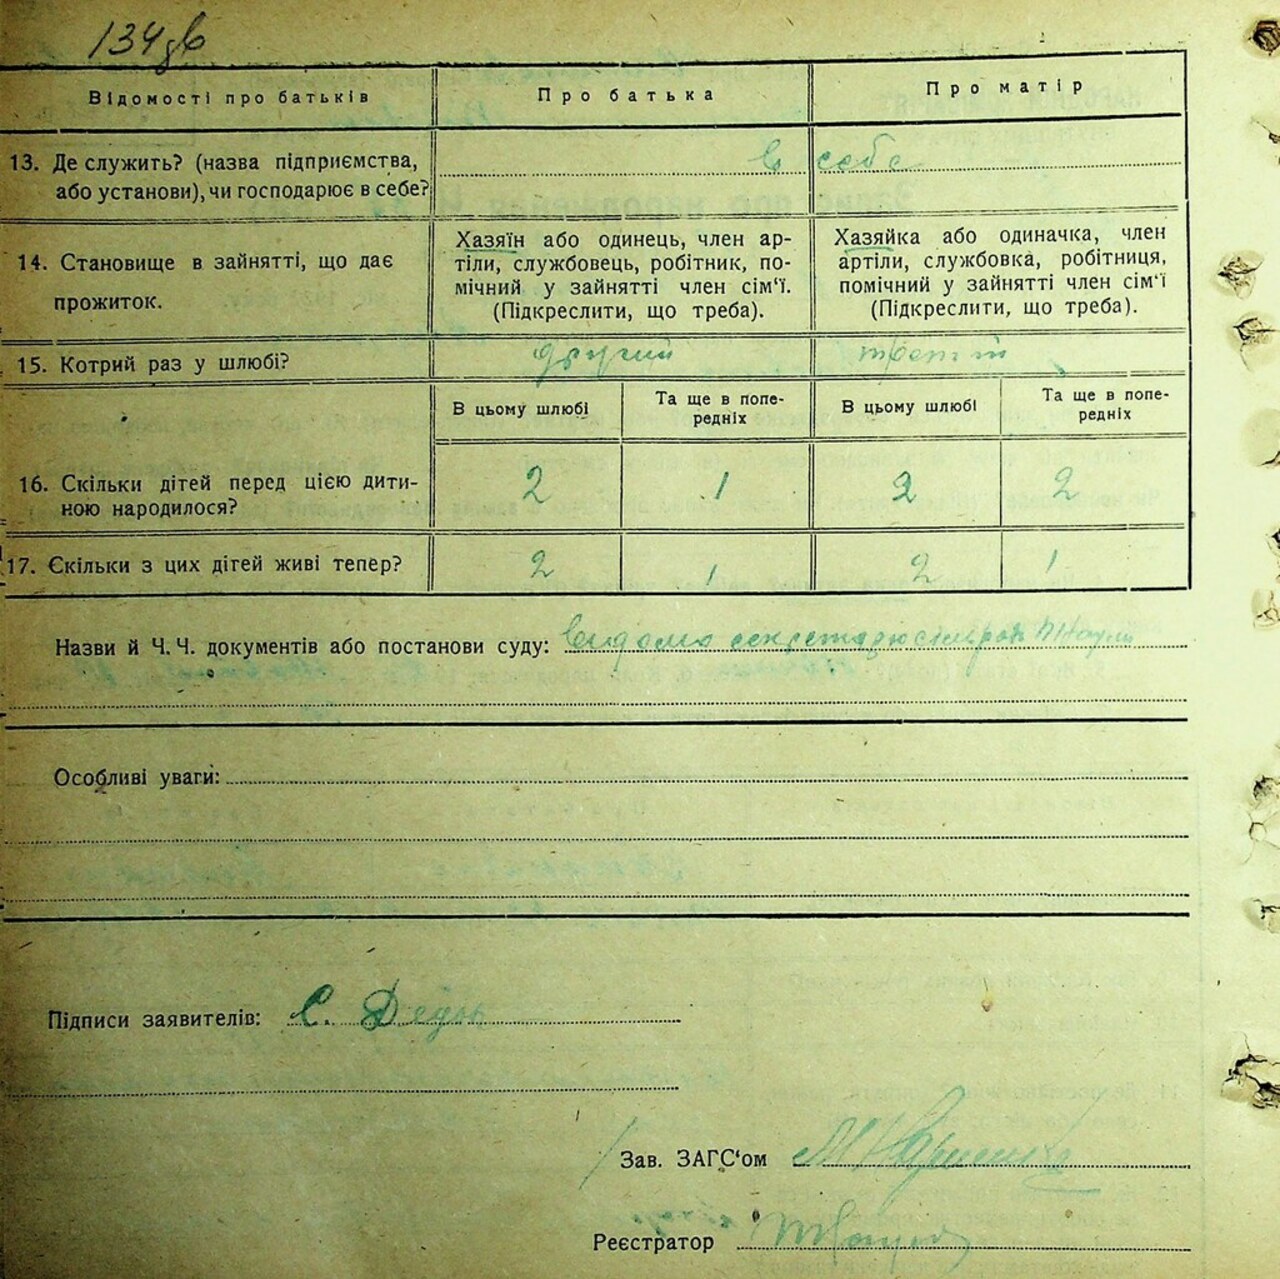 134зв
Відомості про батьків
Про батька
Про матір
13. Де служить? (назва підприємства,
або установи), чи господарює в себе?
в себе
14. Становище в зайнятті, що дає
прожиток.
Хазяїн або одинець, член ар-
тіли, службовець, робітник, по-
мічний у зайнятті член сім'ї.
(Підкреслити, що треба).
Хазяйка або одиначка, член
артіли, службовка, робітниця,
помічний у зайнятті член сім'ї
(Підкреслити, що треба).
15. Котрий раз у шлюбі?
другий
третій
В цьому шлюбі
Та ще в попе-
редніх
В цьому шлюбі
Та ще в попе-
редніх
16. Скільки дітей перед цією дити-
ною народилося?
2 1 2 2
17. Скільки з цих дітей живі тепер?
2 1 2 1
Назви й Ч. Ч. документів або постанови суду: видомо секретарю
Особливі уваги:
Підписи заявителів: С. Дедов
Зав. ЗАГС'ом
Реєстратор